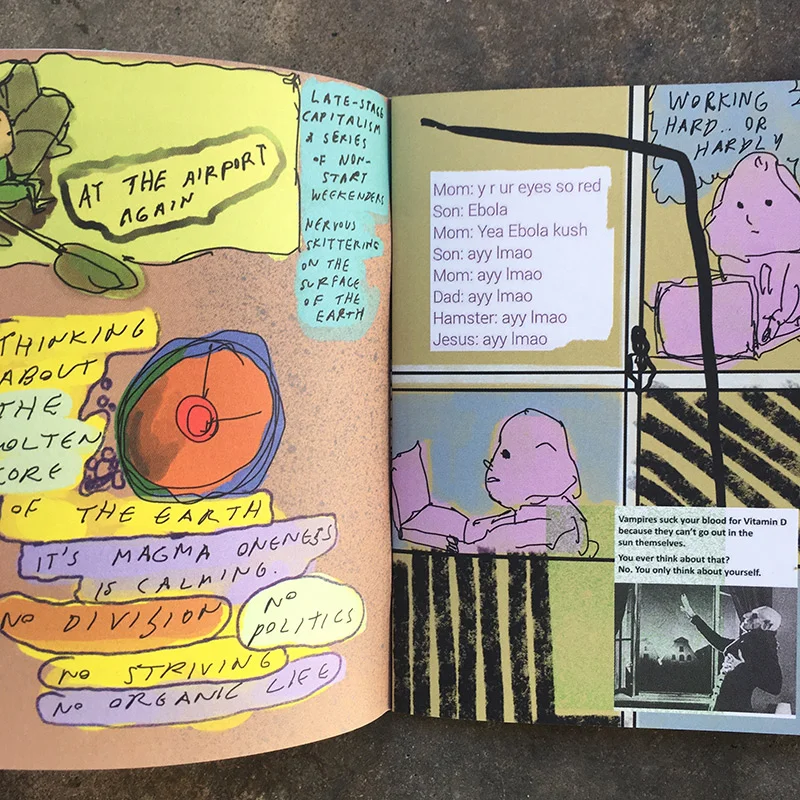 AT THE AIRPORT
AGAIN
LATE-STAGE
CAPITALISM
A SERIES
OF NON-
START
WEEKENDERS
NERVOUS
SKITTERING
ON THE
SURFACE
OF THE
EARTH
THINKING
ABOUT
THE
MOLTEN
CORE
OF THE EARTH
IT'S MAGMA ONENESS
IS CALMING.
NO DIVISION
NO
POLITICS
NO STRIVING
NO ORGANIC LIFE
Mom: y r ur eyes so red
Son: Ebola
Mom: Yea Ebola kush
Son: ayy lmao
Mom: ayy lmao
Dad: ayy lmao
Hamster: ayy lmao
Jesus: ayy lmao
WORKING
HARD.. OR
HARDLY
Vampires suck your blood for Vitamin D
because they can't go out in the
sun themselves.
You ever think about that?
No. You only think about yourself.